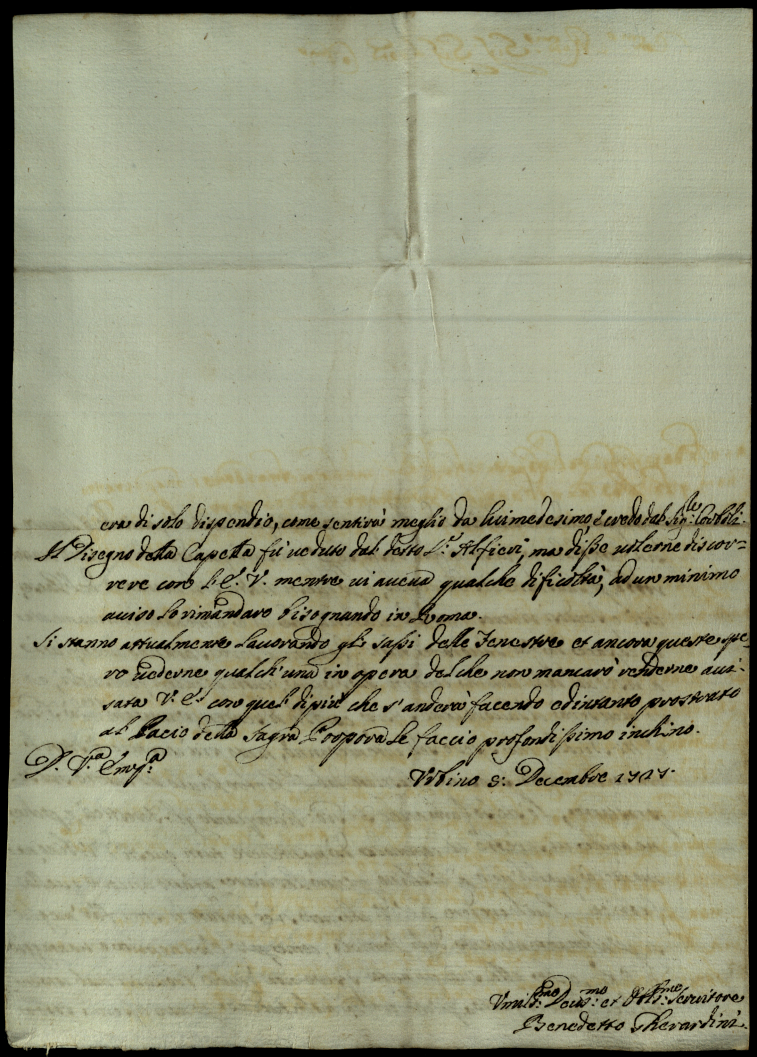 era di solo dispendio, come sentirà meglio da lui medesimo, è credo dal Sig:le
Il Disegno della Capella fù veduto dal detto S.r Alfieri, ma disse volerne discor-
rere con l'E.V. mentre vi aveva qualche dificoltà, ad un minimo
aviso lo rimandarò bisognando in Roma.
Si stanno attualmente lavorando gli sassi delle Fenestre et ancora queste spe-
ro vederne qualch'una in opera del che non mancarò renderne avi-
sata V.E. con quel dipiù che s'anderà facendo ed intanto prostrato
al bacio della Sagra Porpora le faccio profondissimo inchino.
D. V.ra Em.za
Urbino 8: Decembre 1727.
Umil:mo Devo:mo et Obl:mo Servitore
Benedetto Gherardini